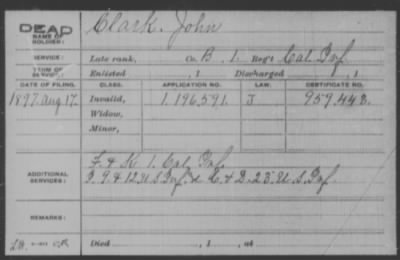 DEAD
NAME OF SOLDIER:
Clark, John
SERVICE:
Late rank, Co. B. 1. Reg't Cal. Inf.
TERM OF SERVICE:
Enlisted , 1 Discharged , 1
DATE OF FILING. CLASS. APPLICATION NO. LAW. CERTIFICATE NO.
1897. Aug 17. Invalid, 1.196.591. J 959.448.
Widow,
Minor,
ADDITIONAL SERVICES:
F. & K 1. Cal. Inf.
F. 9 & 12 U S Inf. & C & D. 23" U. S. Inf
REMARKS:
Died , 1 , at